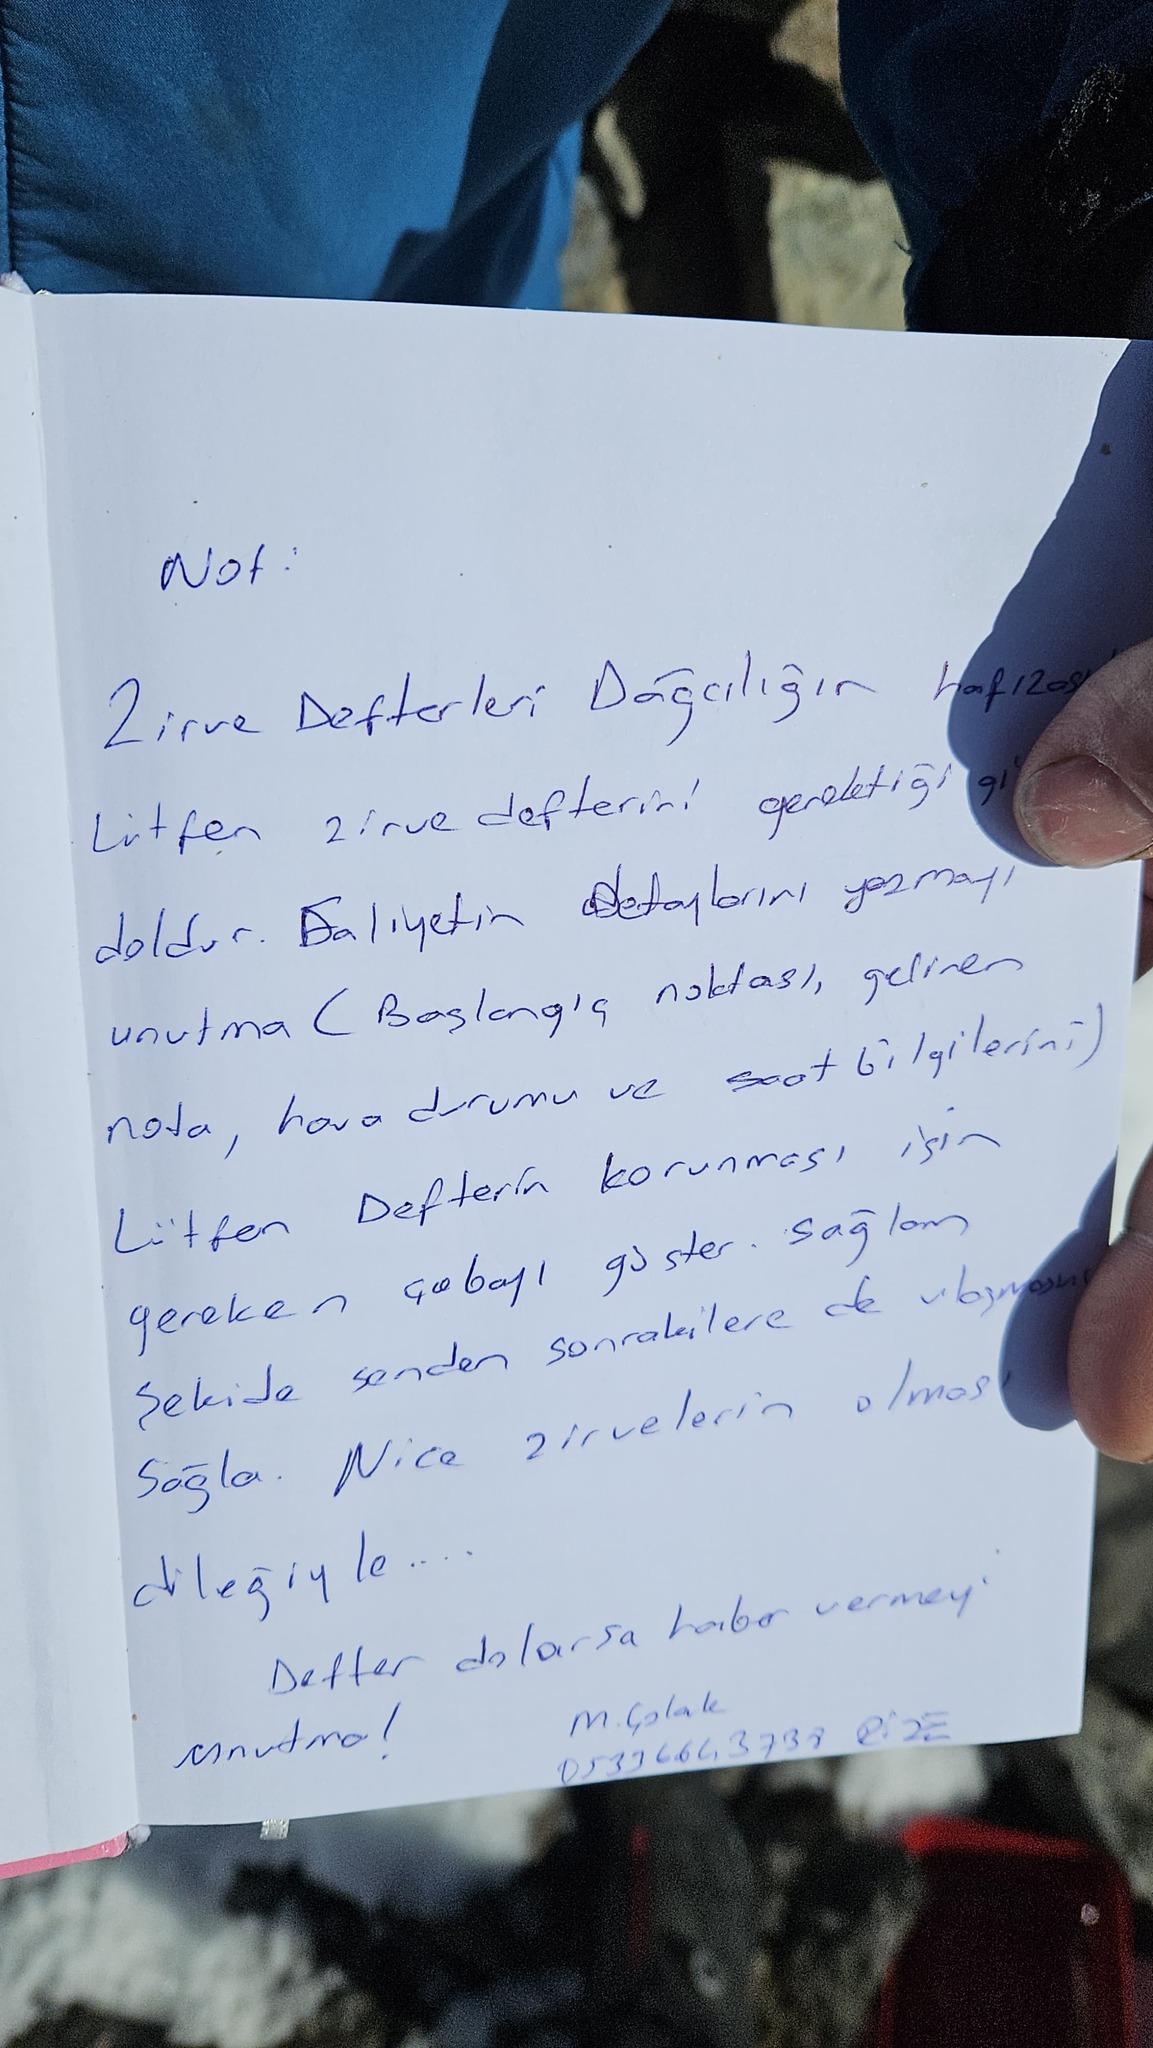 Not:
Zirve Defterleri Dağcılığın hafızası
Lütfen zirve defterini gerektiği gi
doldur. Faliyetin detaylarını yazmayı
unutma (Başlangıç noktası, gelinen
nota, hava durumu ve saat bilgilerini)
Lütfen Defterin korunması için
gereken çabayı göster. Sağlam
şekide senden sonrakilere de ulaşmasını
Sağla. Nice zirvelerin olması
dileğiyle....
Defter dolarsa haber vermeyi
unutma!
M. Çolak
RİZE